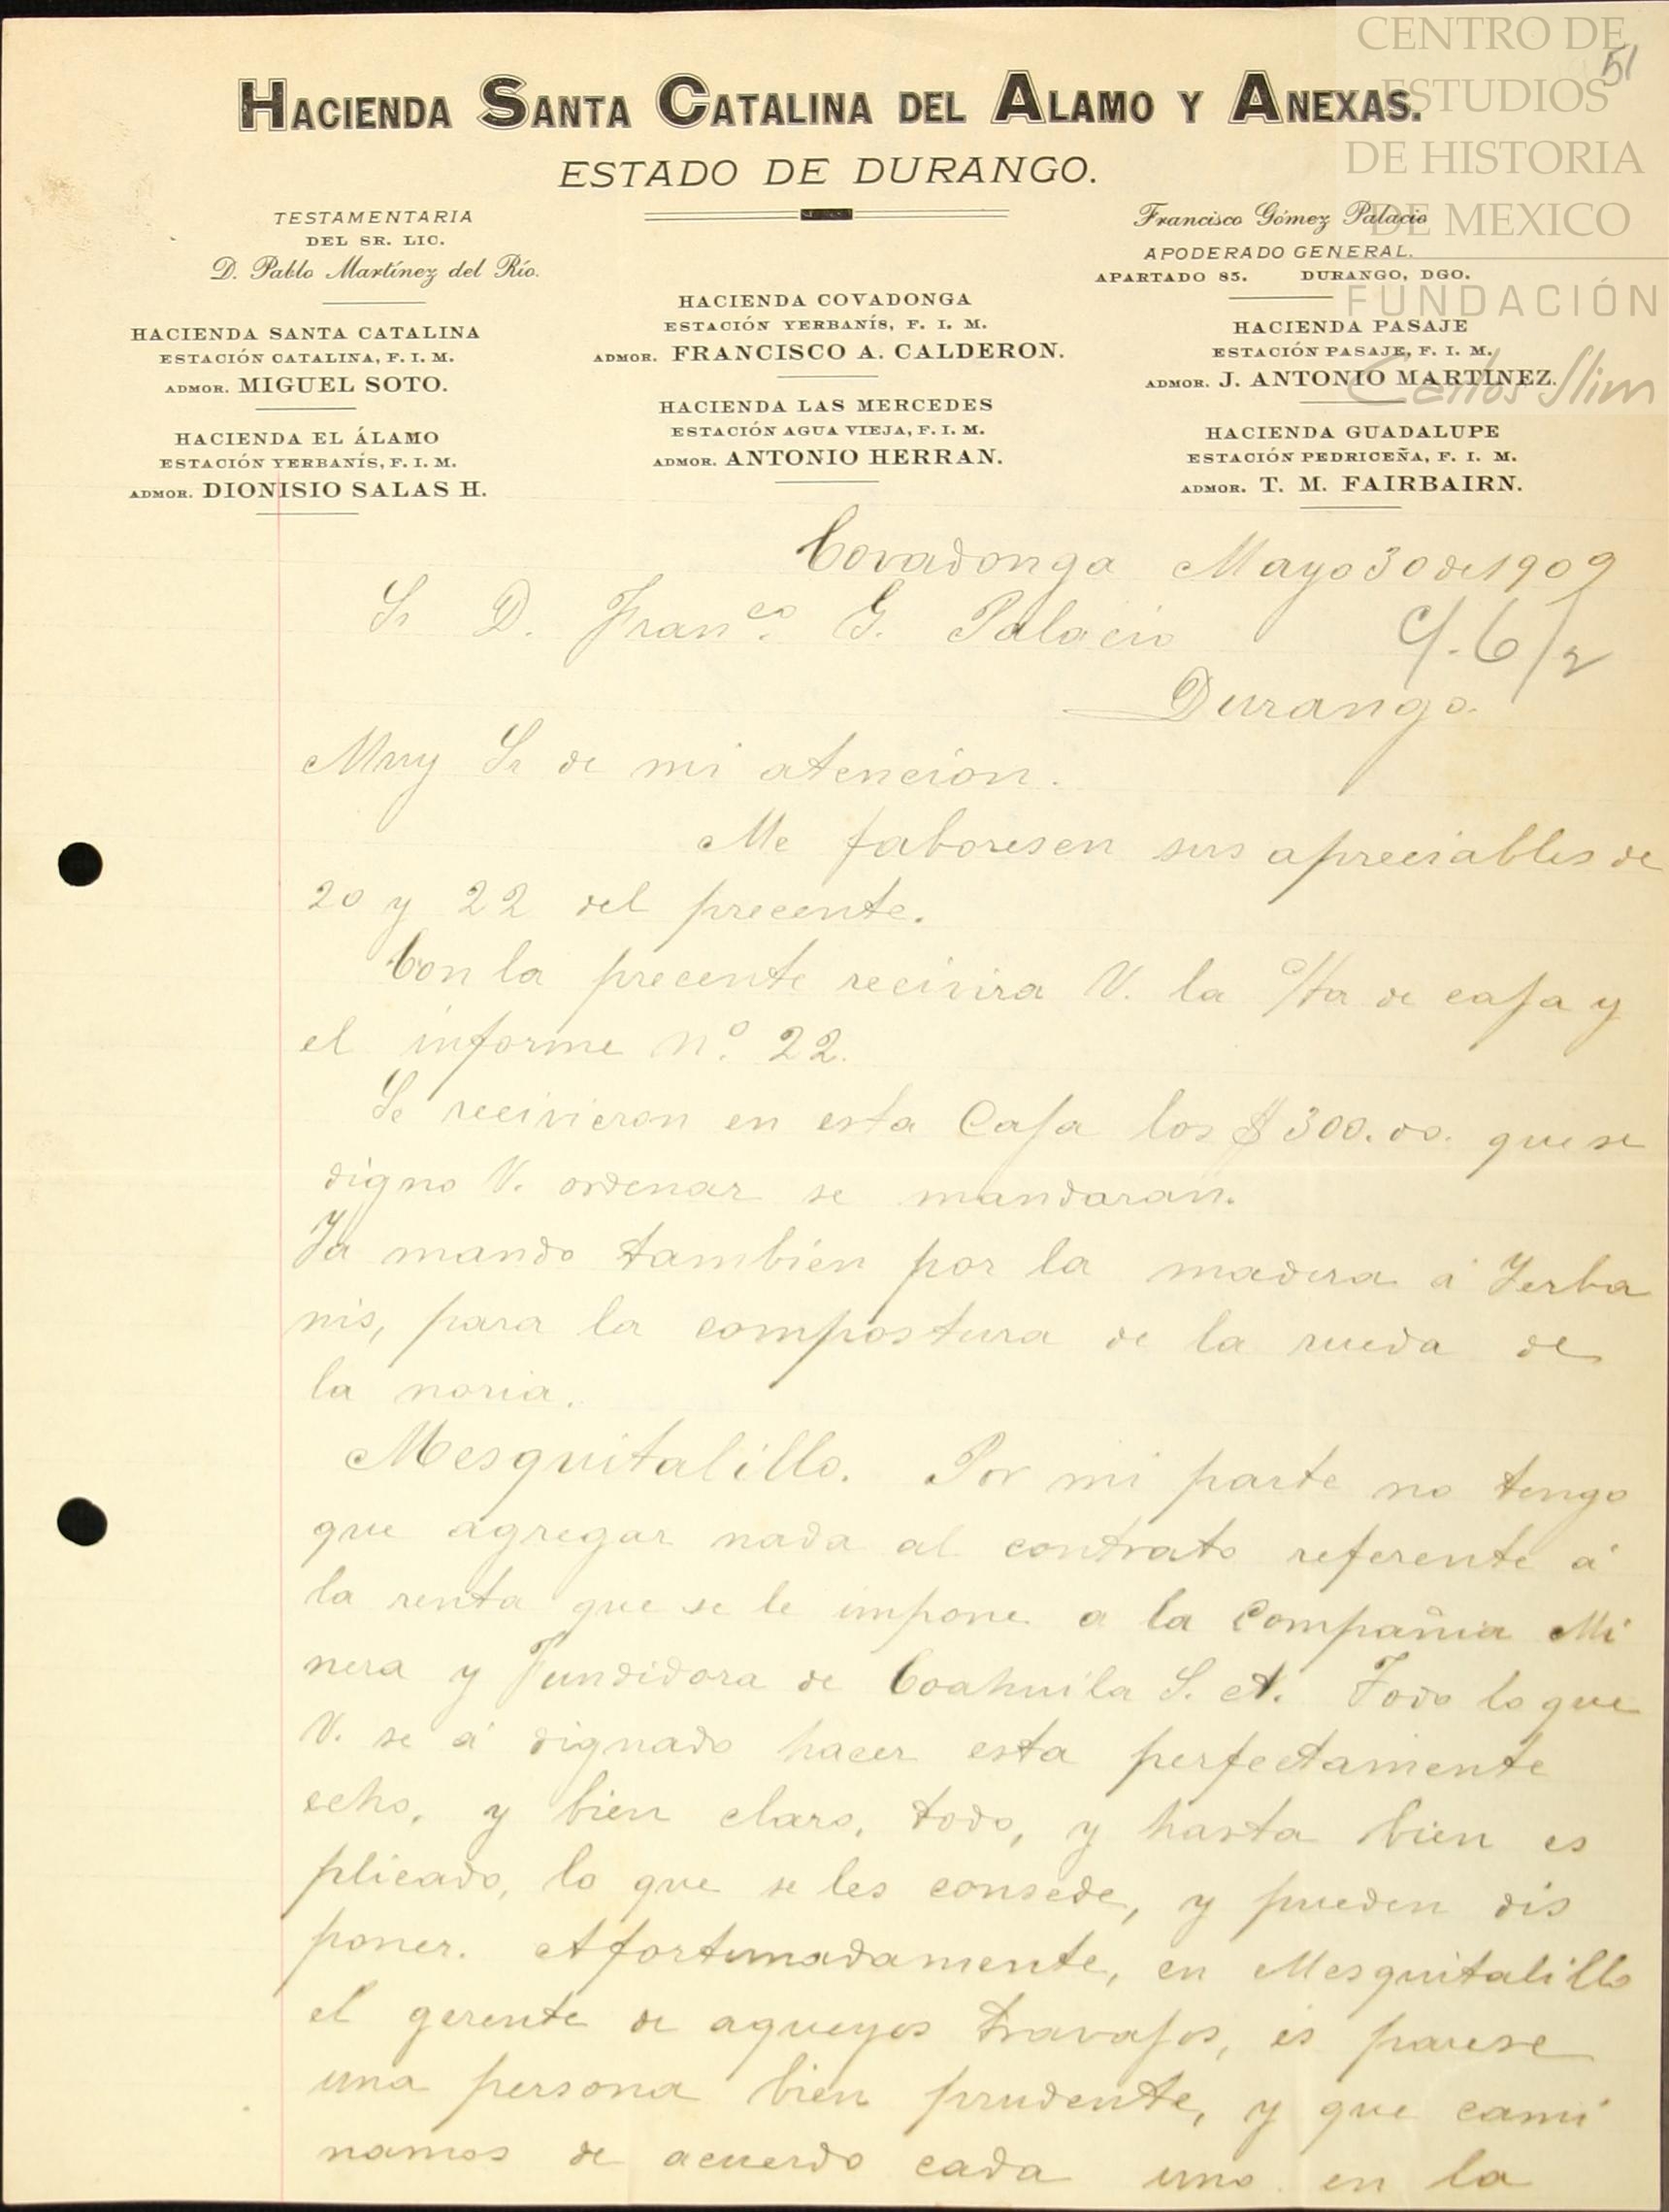 CENTRO DE
ESTUDIOS
DE HISTORIA
DE MEXICO
FUNDACIÓN
Carlos Slim
51
HACIENDA SANTA CATALINA DEL ALAMO Y ANEXAS.
ESTADO DE DURANGO.
TESTAMENTARIA
DEL SR. LIC.
D. Pablo Martínez del Río.
HACIENDA SANTA CATALINA
ESTACIÓN CATALINA, F. I. M.
ADMOR. MIGUEL SOTO.
HACIENDA EL ÁLAMO
ESTACIÓN YERBANÍS, F. I. M.
ADMOR. DIONISIO SALAS H.
HACIENDA COVADONGA
ESTACIÓN YERBANÍS, F. I. M.
ADMOR. FRANCISCO A. CALDERON.
HACIENDA LAS MERCEDES
ESTACIÓN AGUA VIEJA, F. I. M.
ADMOR. ANTONIO HERRAN.
Francisco Gómez Palacio
APODERADO GENERAL.
APARTADO 85. DURANGO, DGO.
HACIENDA PASAJE
ESTACIÓN PASAJE, F. I. M.
ADMOR. J. ANTONIO MARTÍNEZ.
HACIENDA GUADALUPE
ESTACIÓN PEDRICEÑA, F. I. M.
ADMOR. T. M. FAIRBAIRN.
Covadonga Mayo 30 de 1909
Sr D. Franco. G. Palacio
Durango.
Muy Sr de mi atencion.
Me faboresen sus apreciables de
20 y 22 del precente.
Con la precente recivira V. la c/ta de casa y
el informe No. 22.
Se recivieron en esta Casa los $300.00. que se
digno V. ordenar se mandaran.
Ya mando tambien por la madera á Yerba
nis, para la compostura de la rueda de
la noria.
Mesquitalillo. Por mi parte no tengo
que agregar nada al contrato referente á
la renta que se le impone a la Compañia Mi
nera y Fundidora de Coahuila S. A. Todo lo que
V. se á dignado hacer esta perfectamente
echo, y bien claro, todo, y hasta bien es
plicado, lo que se les consede, y pueden dis
poner. Afortunadamente, en Mesquitalillo
el gerente de aqueyos travajos, es parese
una persona bien prudente, y que cami
namos de acuerdo cada uno en la